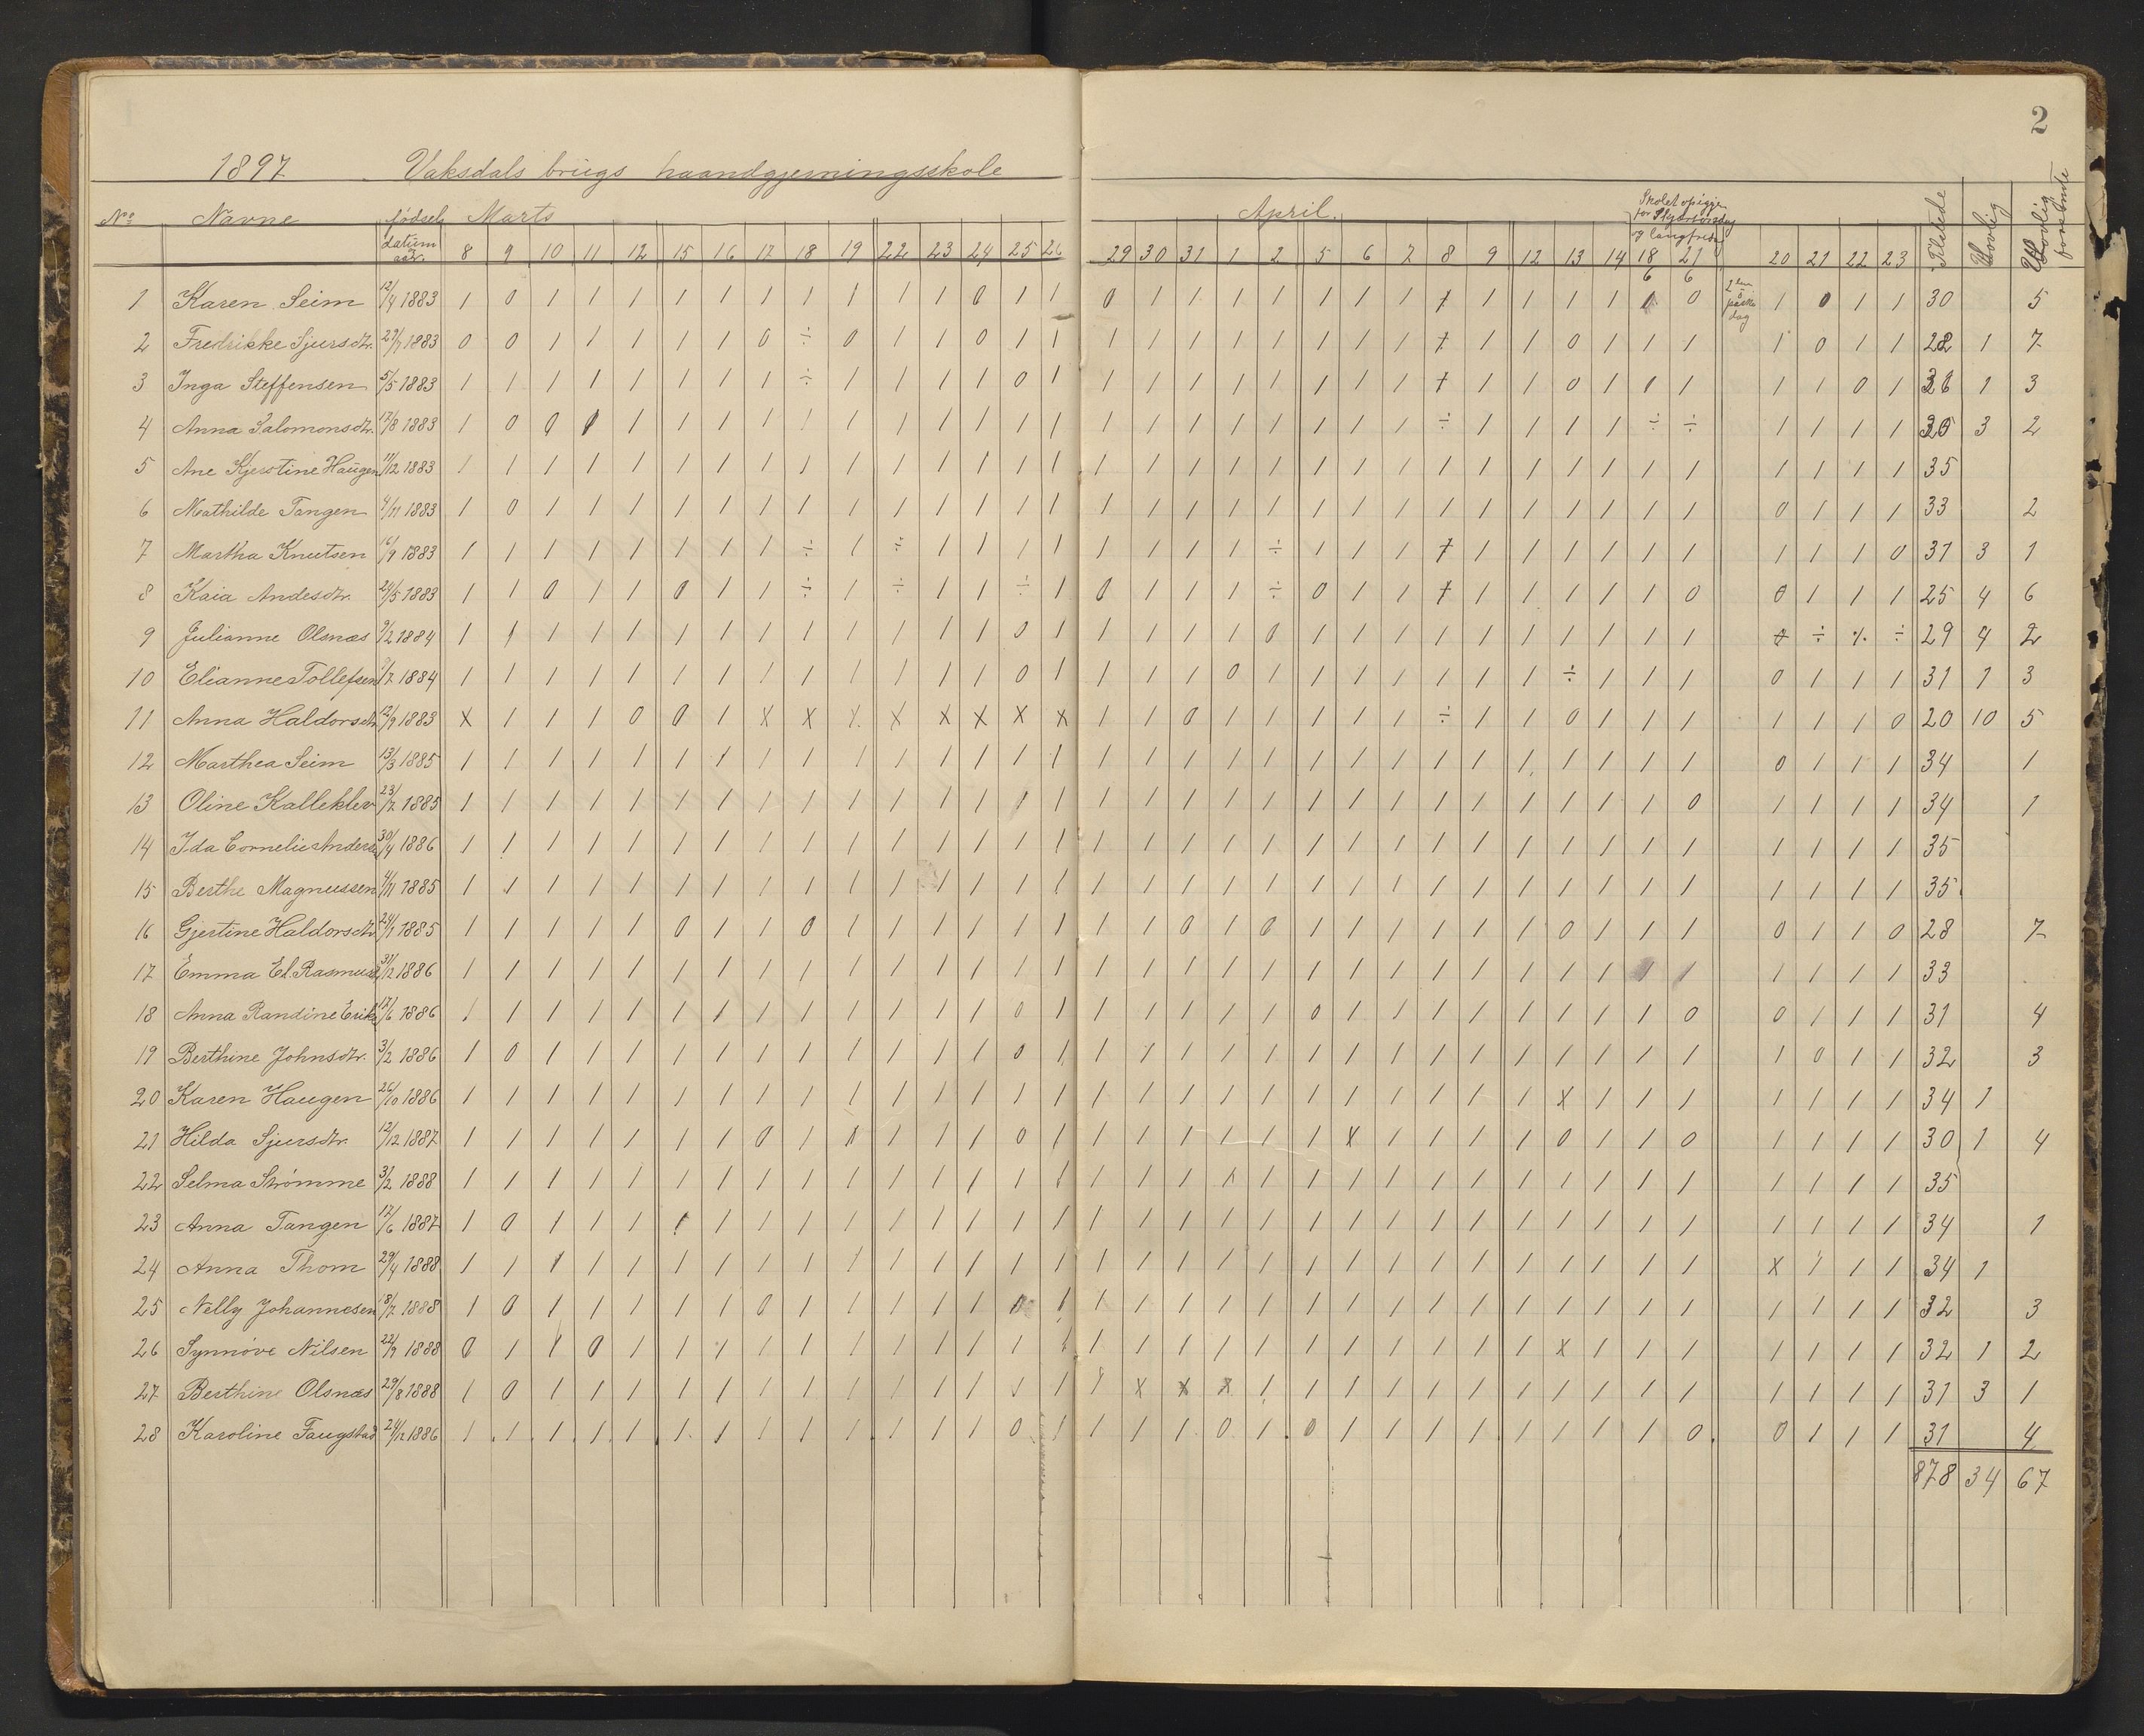 2
1897 Vaksdals brugs haandgjerningsskole
No Navne fødsels datum aar. Marts April. Skolet opigjen for Skjærtorsdag og langfredag Tilstede Lovlig Ulovlig forsømte
8 9 10 11 12 15 16 17 18 19 22 23 24 25 26 29 30 31 1 2 5 6 7 8 9 12 13 14 18/6 21/6 20 21 22 23
1 Karen Seim 12/4 1883 1 0 1 1 1 1 1 1 1 1 1 1 0 1 1 0 1 1 1 1 1 1 1 7 1 1 1 1 1 0 2den paaske dag 1 0 1 1 30 5
2 Fredrikke Sjursdtr. 29/7 1883 0 0 1 1 1 1 1 0 ÷ 0 1 1 0 1 1 1 1 1 1 1 1 1 1 7 1 1 0 1 1 1 1 0 1 1 28 1 7
3 Inga Steffensen 5/5 1883 1 1 1 1 1 1 1 1 ÷ 1 1 1 1 0 1 1 1 1 1 1 1 1 1 7 1 1 0 1 1 1 1 1 0 1 31 1 3
4 Anna Salomonsdtr. 17/8 1883 1 0 0 0 1 1 1 1 1 1 1 1 1 1 1 1 1 1 1 1 1 1 1 ÷ 1 1 1 1 ÷ ÷ 1 1 1 1 30 3 2
5 Ane Kjerstine Haugen 11/12 1883 1 1 1 1 1 1 1 1 1 1 1 1 1 1 1 1 1 1 1 1 1 1 1 1 1 1 1 1 1 1 1 1 1 1 35
6 Mathilde Tangen 4/11 1883 1 0 1 1 1 1 1 1 1 1 1 1 1 1 1 1 1 1 1 1 1 1 1 1 1 1 1 1 1 1 0 1 1 1 33 2
7 Martha Knutsen 16/9 1883 1 1 1 1 1 1 1 1 ÷ 1 ÷ 1 1 1 1 1 1 1 1 ÷ 1 1 1 7 1 1 1 1 1 1 1 1 1 0 31 3 1
8 Kaia Andesdtr. 24/5 1883 1 1 0 1 1 0 1 1 ÷ 1 ÷ 1 1 ÷ 1 0 1 1 1 ÷ 0 1 1 7 1 1 1 1 1 0 0 1 1 1 25 4 6
9 Julianne Olsnæs 9/2 1884 1 1 1 1 1 1 1 1 1 1 1 1 1 0 1 1 1 1 1 0 1 1 1 1 1 1 1 1 1 1 ÷ ÷ ÷ ÷ 29 4 2
10 Elianne Tollefsen 9/7 1884 1 1 1 1 1 1 1 1 1 1 1 1 1 0 1 1 1 1 0 1 1 1 1 1 1 1 ÷ 1 1 1 0 1 1 1 31 1 3
11 Anna Haldorsdtr 12/9 1883 x 1 1 1 0 0 1 x x x x x x x x 1 1 0 1 1 1 1 1 ÷ 1 1 0 1 1 1 1 1 1 0 20 10 5
12 Marthea Seim 13/3 1885 1 1 1 1 1 1 1 1 1 1 1 1 1 1 1 1 1 1 1 1 1 1 1 1 1 1 1 1 1 1 0 1 1 1 34 1
13 Oline Kalleklev 23/2 1885 1 1 1 1 1 1 1 1 1 1 1 1 1 1 1 1 1 1 1 1 1 1 1 1 1 1 1 1 1 0 1 1 1 1 34 1
14 Ida Cornelie Anders 30/4 1886 1 1 1 1 1 1 1 1 1 1 1 1 1 1 1 1 1 1 1 1 1 1 1 1 1 1 1 1 1 1 1 1 1 1 35
15 Berthe Magnussen 4/11 1885 1 1 1 1 1 1 1 1 1 1 1 1 1 1 1 1 1 1 1 1 1 1 1 1 1 1 1 1 1 1 1 1 1 1 35
16 Gjertine Haldorsdtr 24/1 1885 1 1 1 1 1 0 1 1 0 1 1 1 1 1 1 1 1 0 1 0 1 1 1 1 1 1 0 1 1 1 0 1 1 0 28 7
17 Emma El. Rasmuss 31/12 1886 1 1 1 1 1 1 1 1 1 1 1 1 1 1 1 1 1 1 1 1 1 1 1 1 1 1 1 1 1 1 1 1 1 1 33
18 Anna Randine Eriks 17/6 1886 1 1 1 1 1 1 1 1 1 1 1 1 1 0 1 1 1 1 1 1 0 1 1 1 1 1 1 1 1 0 0 1 1 1 31 4
19 Berthine Johnsdtr. 3/2 1886 1 0 1 1 1 1 1 1 1 1 1 1 1 0 1 1 1 1 1 1 1 1 1 1 1 1 1 1 1 1 1 0 1 1 32 3
20 Karen Haugen 26/10 1886 1 1 1 1 1 1 1 1 1 1 1 1 1 1 1 1 1 1 1 1 1 1 1 1 1 1 x 1 1 1 1 1 1 1 34 1
21 Hilda Sjursdtr. 12/12 1887 1 1 1 1 1 1 1 0 1 1 1 1 1 0 1 1 1 1 1 1 1 x 1 1 1 1 0 1 1 0 1 1 1 1 30 1 4
22 Selma Strømme 3/2 1888 1 1 1 1 1 1 1 1 1 1 1 1 1 1 1 1 1 1 1 1 1 1 1 1 1 1 1 1 1 1 1 1 1 1 35
23 Anna Tangen 17/6 1887 1 0 1 1 1 1 1 1 1 1 1 1 1 1 1 1 1 1 1 1 1 1 1 1 1 1 1 1 1 1 1 1 1 1 34 1
24 Anna Thom 29/4 1888 1 1 1 1 1 1 1 1 1 1 1 1 1 1 1 1 1 1 1 1 1 1 1 1 1 1 1 1 1 1 x 1 1 1 34 1
25 Nelly Johannesen 18/7 1888 1 0 1 1 1 1 1 0 1 1 1 1 1 0 1 1 1 1 1 1 1 1 1 1 1 1 1 1 1 1 1 1 1 1 32 3
26 Synnøve Nilsen 22/9 1888 0 1 1 0 1 1 1 1 1 1 1 1 1 1 1 1 1 1 1 1 1 1 1 1 1 1 x 1 1 1 1 1 1 1 32 1 2
27 Berthine Olsnæs 29/8 1888 1 0 1 1 1 1 1 1 1 1 1 1 1 1 1 1 x x x 1 1 1 1 1 1 1 1 1 1 1 1 1 1 1 31 3 1
28 Karoline Faugstad 24/12 1886 1 1 1 1 1 1 1 1 1 1 1 1 1 0 1 1 1 1 0 1 0 1 1 1 1 1 1 1 1 0 0 1 1 1 31 4
878 34 67